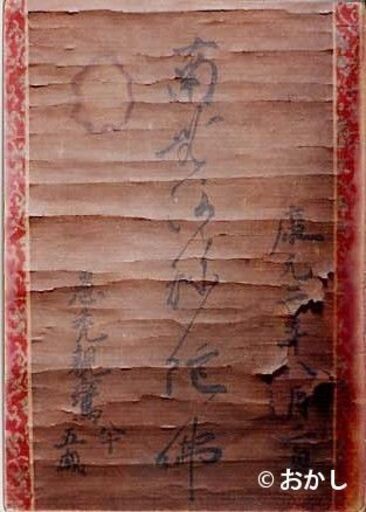 康元二年八月
南無阿弥陀佛
愚禿親鸞八十
五歳
© おかし